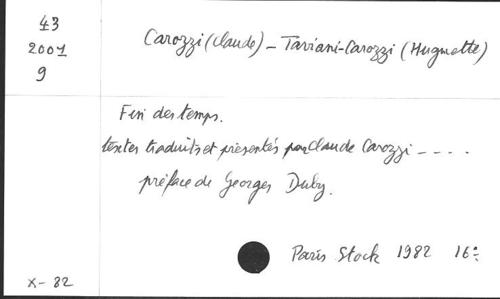 43
2001
9
Carozzi (Claude) – Taviani-Carozzi (Huguette)
Fin des temps.
textes traduits et présentés par Claude Carozzi – – – –
préface de Georges Duby.
Paris Stock 1982 16°
X- 82